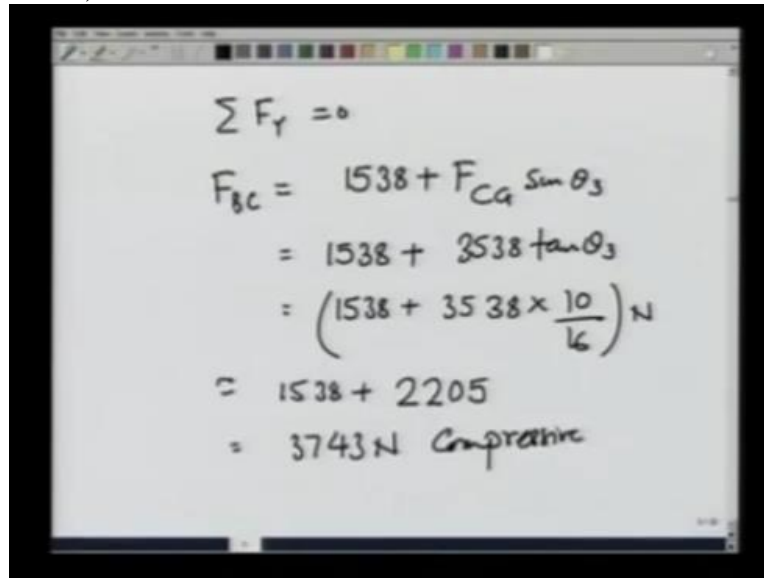 Σ F_Y = 0
F_BC = 1538 + F_CG Sin θ_3
= 1538 + 3538 tan θ_3
= (1538 + 3538 × 10/16) N
= 1538 + 2205
= 3743 N Compressive